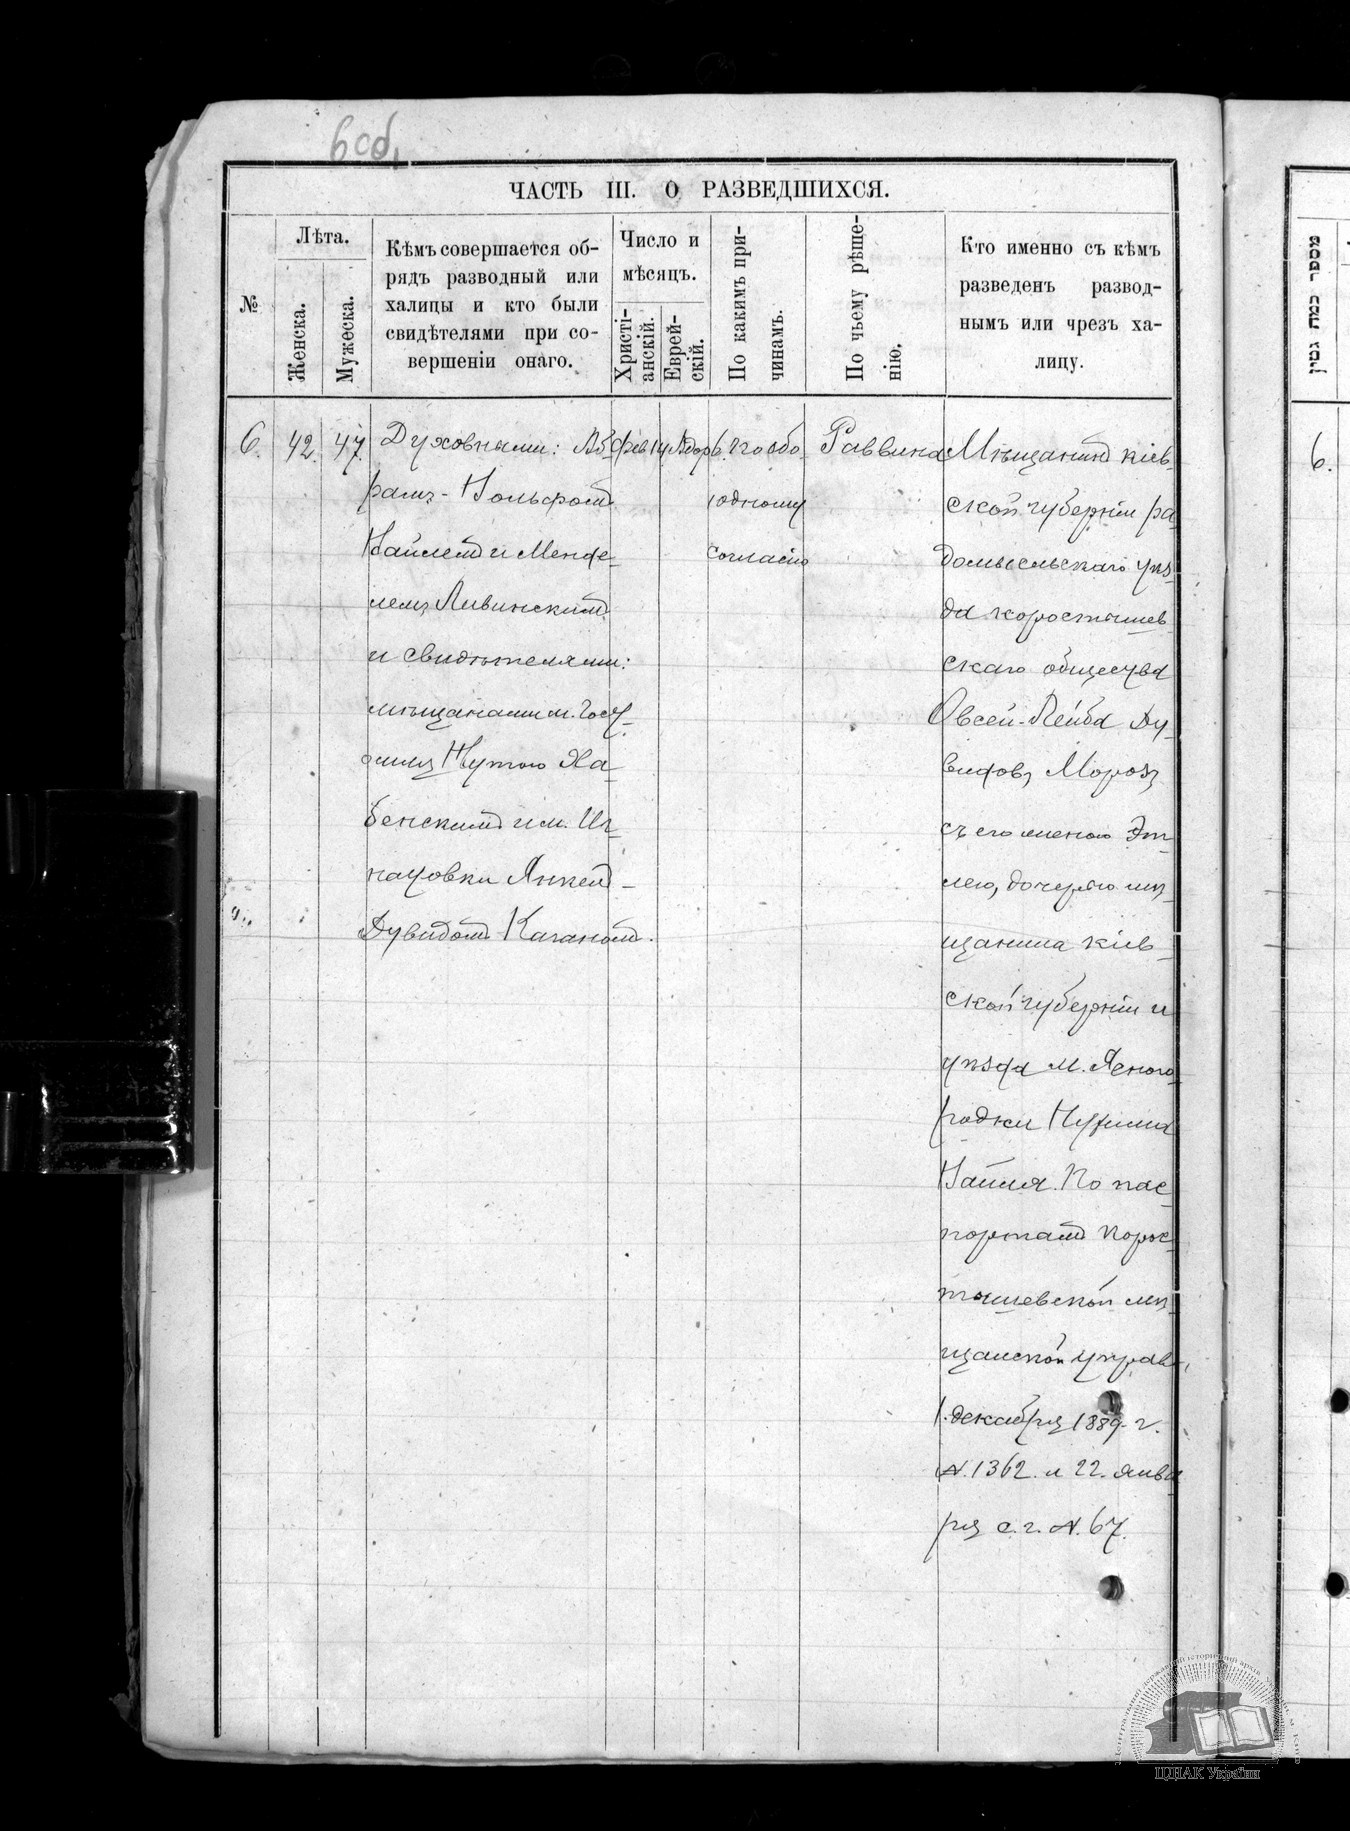 6 об,
ЧАСТЬ III. О РАЗВЕДШИХСЯ.
№
Лѣта.
Женска.
Мужеска.
Кѣмъ совершается об-
рядъ разводный или
халицы и кто были
свидѣтелями при со-
вершеніи онаго.
Число и
мѣсяцъ.
Христі-
анскій.
Еврей-
скій.
По какимъ при-
чинамъ.
По чьему рѣше-
нію.
Кто именно съ кѣмъ
разведенъ развод-
нымъ или чрезъ ха-
лицу.
6.
42.
47.
Духовными: Аб-
рамъ-Вольфомъ
и Менде-
лемъ Ливинскимъ
и свидѣтелями:
мѣщанами м.
Нутою Ха-
бенскимъ и м. Иг-
натовки Янкель-
Дувидомъ Каганомъ.
Фев 14
Адор
По обо
юдному
согласію
Раввина
Мѣщанинъ кіев-
ской губерніи ра-
домысльскаго уѣз-
да коростышев-
скаго общества
Овсей-Лейба Ду-
видовъ Морозъ
съ его женою Эт-
лею, дочерью мѣ-
щанина кіев-
ской губерніи и
уѣзда м. Ясного-
родки Нухима
По пас-
портамъ Корос-
тышевской мѣ-
щанской управы,
1. декабря 1889 г.
N. 1362. и 22. янва
ря с. г. N. 67.
מספר כמה גטין
6.
ЦДІАК України